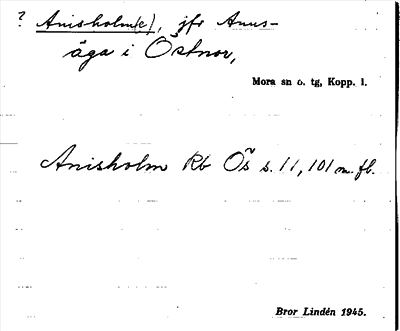 ? Anisholm(e), jfr Anus-
äga i Östnor,
Mora sn o. tg, Kopp. l.
Anisholm Rb Ös s. 11, 101 m. fl.
Bror Lindén 1945.